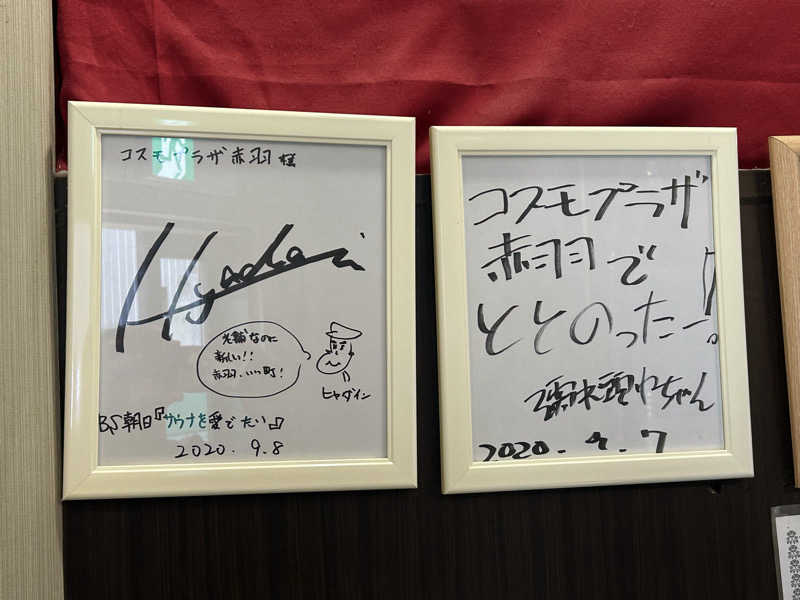 コスモプラザ赤羽様
Hyadain
老舗なのに
新しい!!
赤羽、いい町!
ヒャダイン
BS朝日『サウナを愛でたい』
2020.9.8
コスモプラザ
赤羽で
ととのったー!
ちゃん
2020.9.7